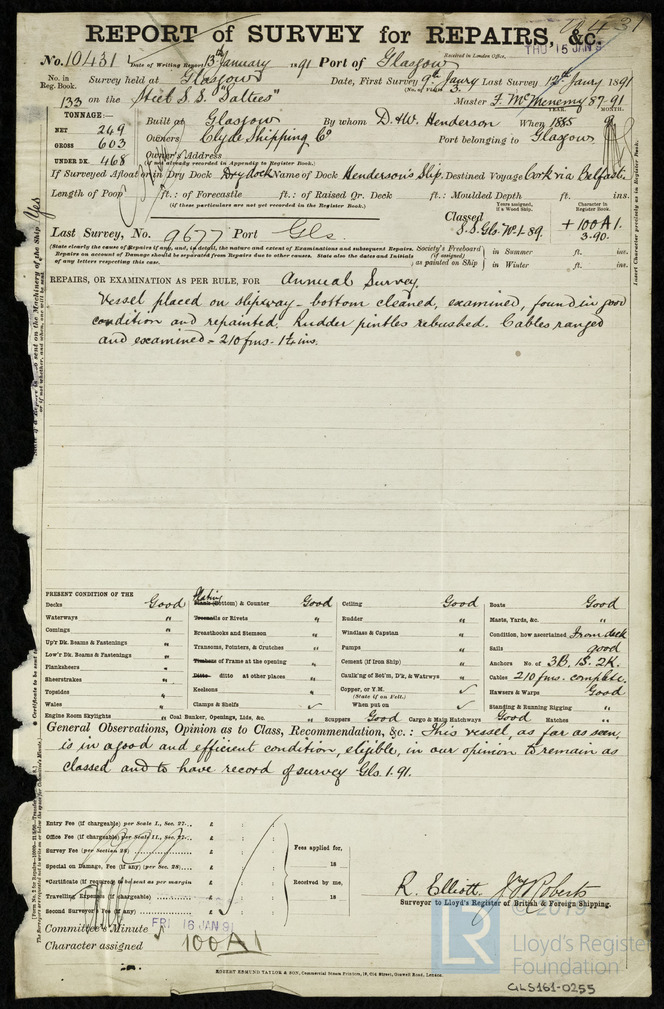 REPORT of SURVEY for REPAIRS, &c.
No. 10431 Date of Writing Report 13th January 1891 Port of Glasgow Received in London Office, THU 15 JAN 9
No. in Reg. Book. Survey held at Glasgow Date, First Survey 9th Jany Last Survey 12th Jany 1891
(No. of Visits 3.
133 on the Steel S.S. "Saltees" Master F. McMenemy 87-91
YEAR. MONTH.
TONNAGE:—
NET 249
GROSS 603
UNDER DK. 468
Built at Glasgow By whom D. & W. Henderson When 1885 9
Owners Clyde Shipping Co Port belonging to Glasgow
Owner's Address
(If not already recorded in Appendix to Register Book.)
If Surveyed Afloat or in Dry Dock Dry dock Name of Dock Henderson's Slip. Destined Voyage Cork via Belfast
Length of Poop ft.: of Forecastle ft.: of Raised Qr. Deck ft.: Moulded Depth ft. ins.
(if these particulars are not yet recorded in the Register Book.)
Years assigned, if a Wood Ship. Character in Register Book.
Classed S.S. Gls. No. 1-89. + 100A1.
3-90.
Last Survey, No. 9677 Port Gls
(State clearly the cause of Repairs if any, and, in detail, the nature and extent of Examinations and subsequent Repairs. Repairs on account of Damage should be separated from Repairs due to other causes. State also the dates and initials of any letters respecting this case.
Society's Freeboard (if assigned) as painted on Ship in Summer ft. ins.
in Winter ft. ins.
REPAIRS, OR EXAMINATION AS PER RULE, FOR Annual Survey.
Vessel placed on slipway - bottom cleaned, examined, found in good
condition and repainted. Rudder pintles rebushed. Cables ranged
and examined = 210 fms -
PRESENT CONDITION OF THE
Decks Good
Waterways "
Comings "
Up'r Dk. Beams & Fastenings "
Low'r Dk. Beams & Fastenings "
Planksheers "
Sheerstrakes "
Topsides "
Wales "
Engine Room Skylights "
Plating
Plank (Bottom) & Counter Good
Treenails or Rivets "
Breasthooks and Stemson "
Transoms, Pointers, & Crutches "
Timbers of Frame at the opening "
Ditto ditto at other places "
Keelsons "
Clamps & Shelfs ✓
Coal Bunker, Openings, Lids, &c. "
Ceiling Good
Rudder "
Windlass & Capstan "
Pumps "
Cement (if Iron Ship) "
Caulk'ng of Bot'm, D'k, & Watrwys "
Copper, or Y.M. ✓
(State if on Felt.)
When put on ✓
Scuppers Good Cargo & Main Hatchways Good
Boats Good
Masts, Yards, &c. "
Condition, how ascertained From deck
Sails good
Anchors No. of 3B. 1S. 2K.
Cables 210 fms. complete.
Hawsers & Warps Good
Standing & Running Rigging "
Hatches "
General Observations, Opinion as to Class, Recommendation, &c.: This vessel, as far as seen,
is in a good and efficient condition, eligible, in our opinion to remain as
classed and to have record of survey Gls. 1. 91.
Entry Fee (if chargeable) per Scale I., Sec. 27... £
Office Fee (if chargeable) per Scale II., Sec. 27... £
Survey Fee (per Section 28) £
Special on Damage, Fee (if any) (per Sec. 28) £
*Certificate (if required) to be sent as per margin
Travelling Expenses (if chargeable) £
Second Surveyor's Fee (if any) £
Fees applied for,
18
Received by me,
18
R. Elliott. J. Roberts
Surveyor to Lloyd's Register of British & Foreign Shipping.
Committee's Minute FRI 16 JAN 91
Character assigned 100A1
© 2019
LR
Lloyd's Register
Foundation
ROBERT EDMUND TAYLOR & SON, Commercial Steam Printers, 19, Old Street, Goswell Road, London.
GLS161-0255